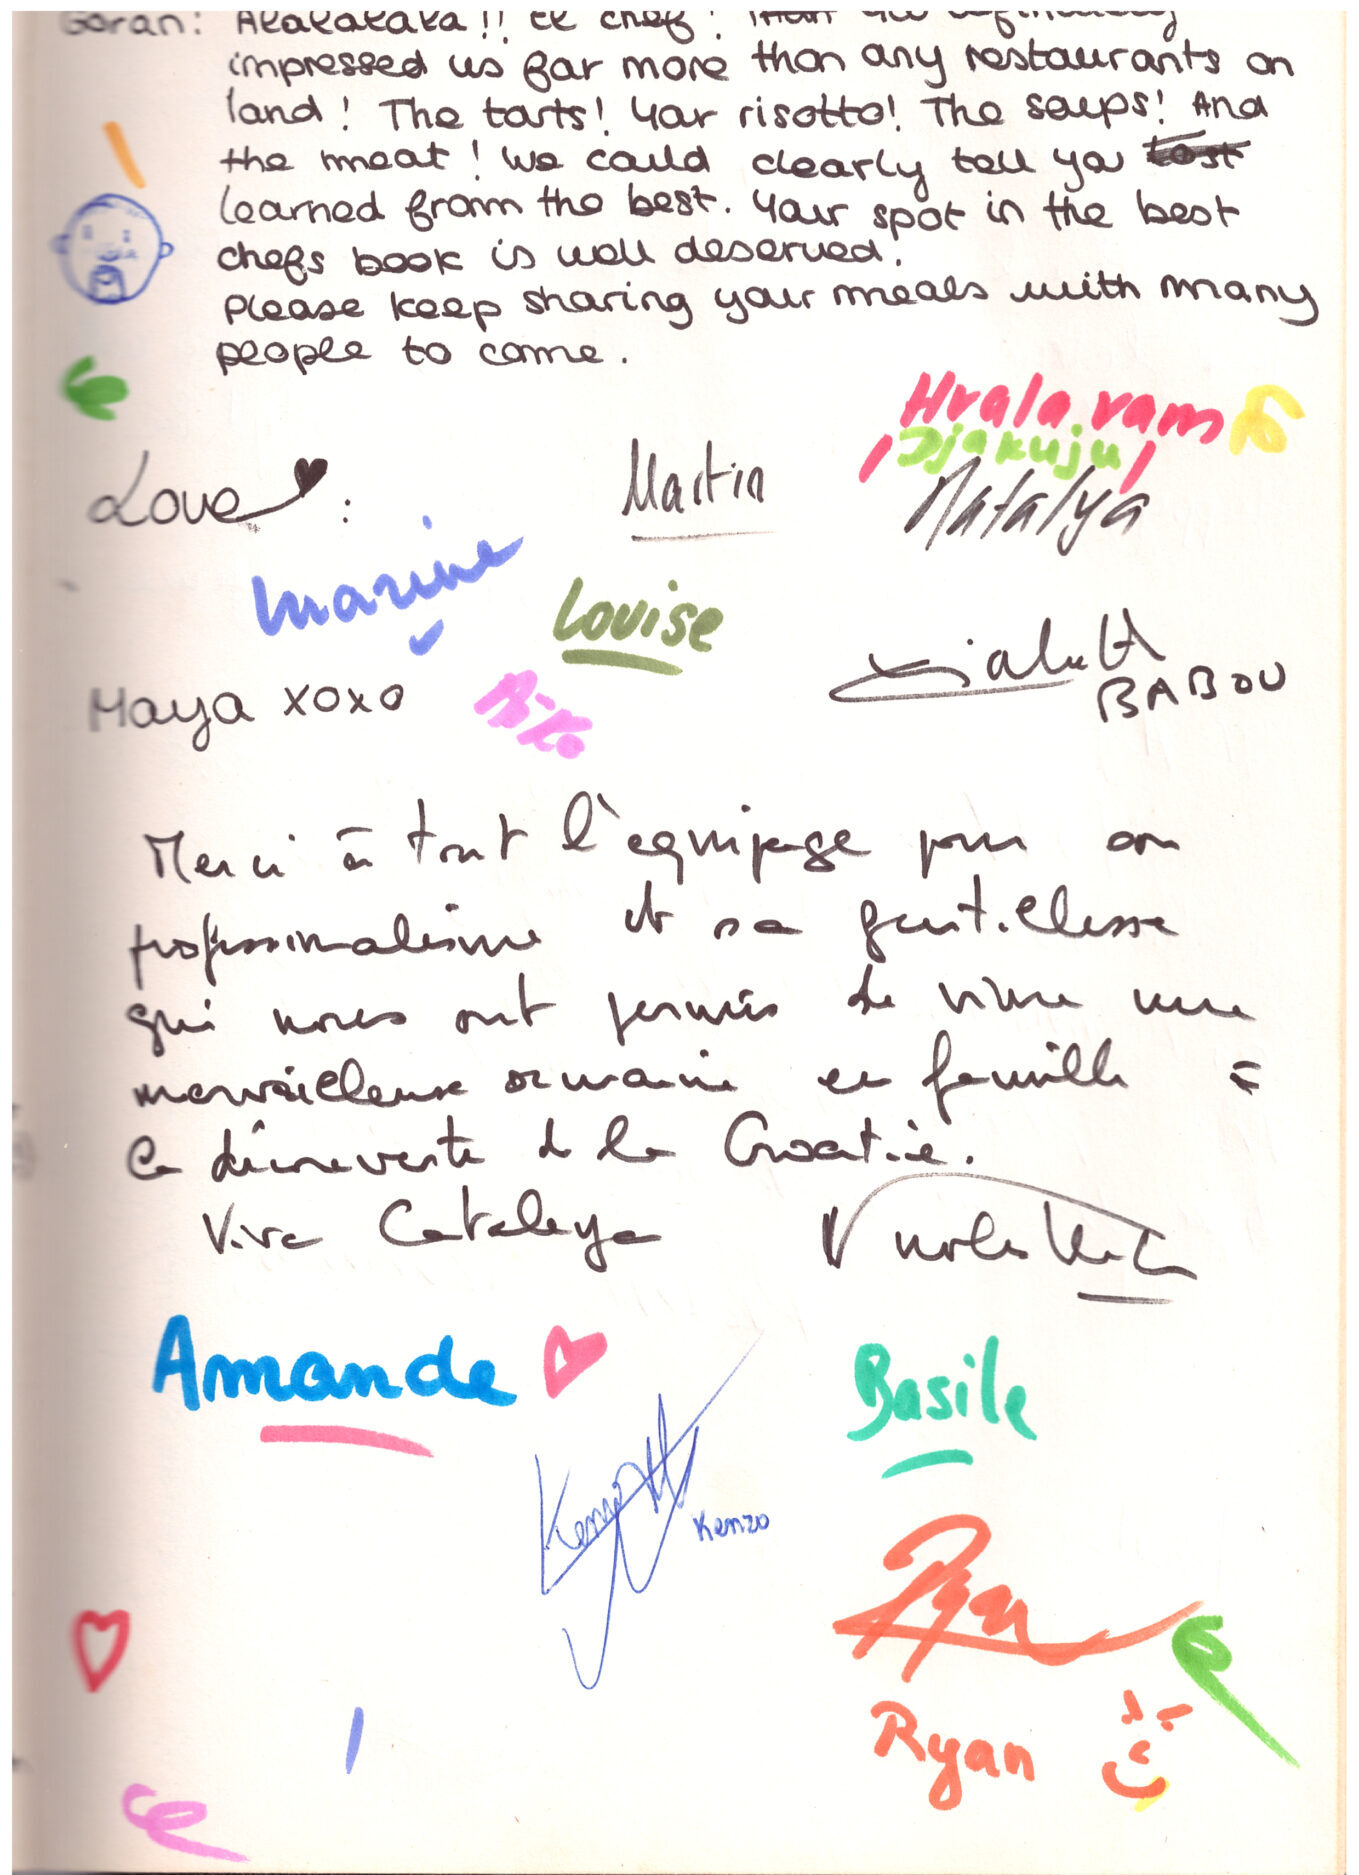 Goran: Alalalalala!! Le chef!
impressed us far more than any restaurants on
land! The tarts! Your risotto! The soups! And
the meat! We could clearly tell you
learned from the best. Your spot in the best
chefs book is well deserved!
Please keep sharing your meals with many
people to come.
Hvala vam
Djakuju!
Love :
Martin
Natalya
Marine
Louise
BABOU
Maya xoxo
Riko
Merci à tout l'equipage pour son
professionnalisme et sa gentillesse
qui nous ont permis de vivre une
merveilleuse semaine en famille à
la découverte de la Croatie.
Viva Cataleya
Amande
Basile
Kenzo
Kenzo
Ryan
Ryan